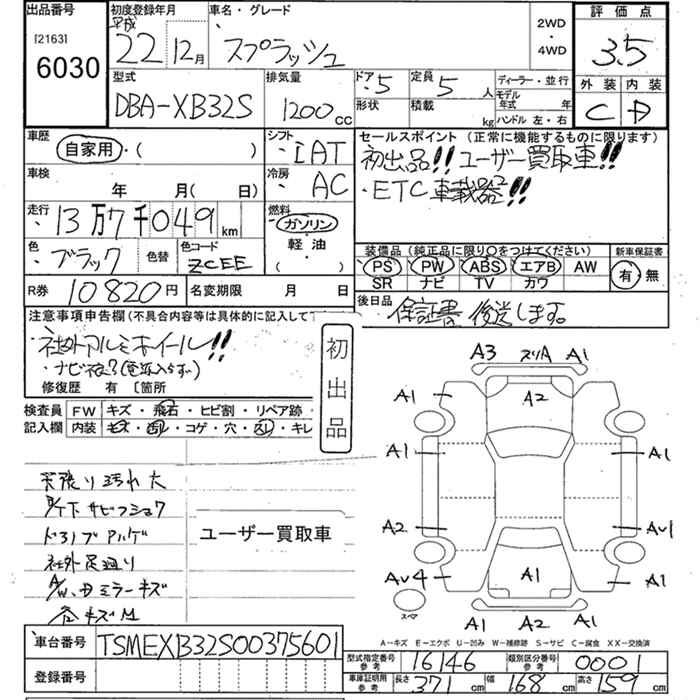 出品番号 初度登録年月 車名・グレード 2WD ・ 4WD 評価点
[2163] 6030 平成 22 12月 スプラッシュ 3.5
型式 排気量 ドア 5 定員 5人 ディーラー・並行 外装 内装
DBA-XB32S 1200cc 形状 積載 kg モデル年式 年 C D
ハンドル 左・右
車歴 シフト セールスポイント(正常に機能するものに限ります)
自家用・( ) IAT 初出品!! ユーザー買取車!!
車検 冷房 ・ETC車載器!!
年 月( 日) AC
走行 13万7千049km 燃料 ガソリン
色 ブラック 色替 色コード ZCEE 軽油 ・( )
装備品(純正品に限り○をつけてください) 新車保証書
PS PW ABS エアB AW 有 無
SR ナビ TV カワ
R券 10820円 名変期限 月 日 後日品 保証書 後送します。
注意事項申告欄(不具合内容等は具体的に記入して
社外アルミホイール!! 初出品
修復歴 有 〔箇所
検査員 FW キズ・飛石・ヒビ割・リペア跡・
記入欄 内装 コゲ・穴・スレ・キレ
A3 スリA A1
A1 A2
A1 A1
A2 AV1
AV4 A1 A1
スペア A1 A2 A1
天張り汚れ大
ユーザー買取車
社外足廻り
A-キズ E-エクボ U-凹み W-補修跡 S-サビ C-腐食 XX-交換済
車台番号 TSMEXB32S00375601
型式指定番号 参考 16146 類別区分番号 参考 0001
登録番号 車庫証明用 参考 長さ 371cm 幅 168cm 高さ 159cm